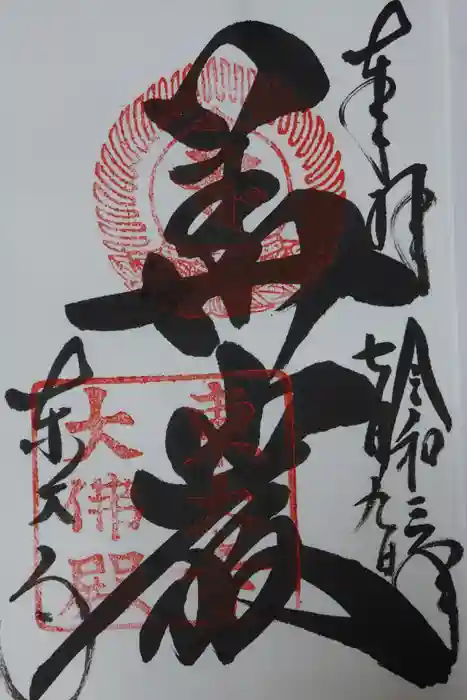 奉拝
令和三年
七月九日
華厳
東大寺
東大寺
大佛殿